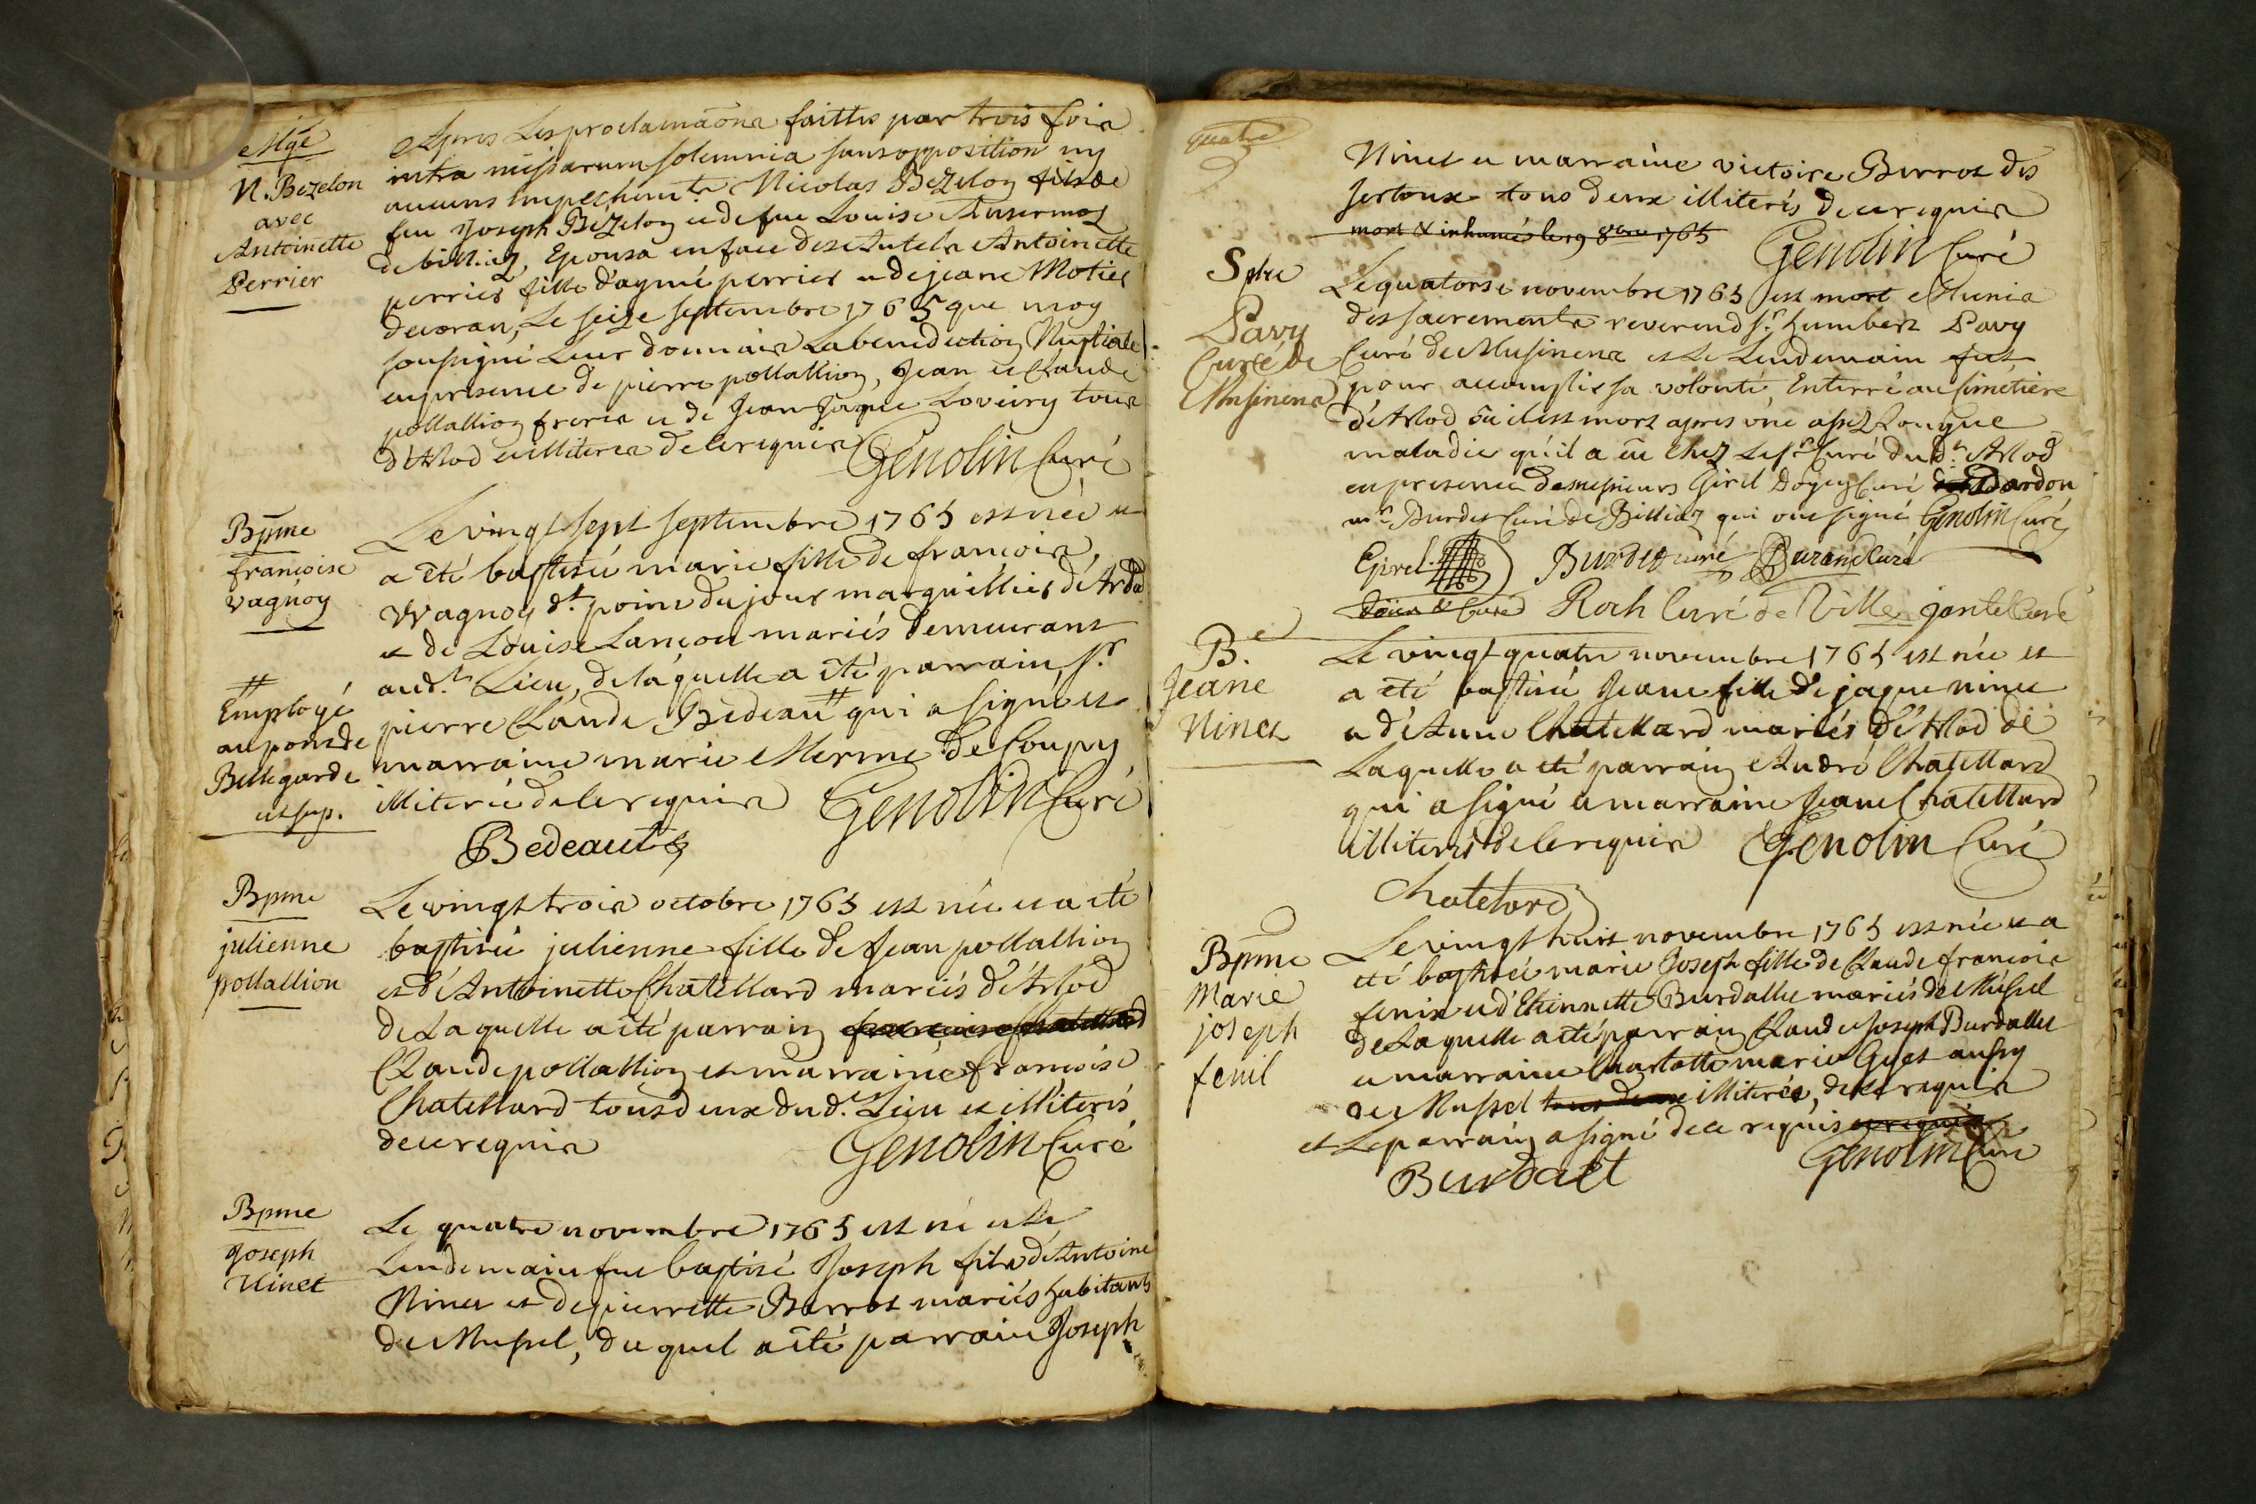 Mge
N. Bezelon
avec
Antoinette
Perrier
Apres Les proclamaõns faittes par trois fois
intra missarum solemnia sans opposition ny
aucuns empechemts Nicolas Bezelon fils de
feu Joseph Bezelon et de feue Louise Ansermoz
de billiaz, Epousa en face des Autels Antoinette
perrier fille d'aymé perrier et de jeane Motier
decoran, Le seize septembre 1765 que moy
soussigné Leur donnais La benediction Nuptiale
en presence de pierre pollallion, Jean et Claude
pollallion freres et de Jean Jaque Loveiry tous
d'Arlod et illiteres de ce requis Genolin Curé
Bpme
françoise
vagnoy
Le vingt sept septembre 1765 est née et
a été baptisée marie fille de françois
Wagnoy dt. point du jour marguillier d'Arlod
et de Louise Lançon mariés demeurant
audt. Lieu, de laquelle a été parrain sr.
pierre Claude Bedeau # qui a signé et
marraine marie Merme de Coupy
illiterée de ce requis Genolin Curé
#
Employé
au pont de
Bellegarde
et sup.
Bedeaut
Bpme
julienne
pollallion
Le vingt trois octobre 1765 est née et a été
baptisée julienne fille de Jean pollallion
et d'Antoinette Chatellard mariés d'Arlod
de Laquelle a été parrain françoise Chatellard
Claude pollallion et marraine françoise
Chatellard tous deux dudt. Lieu et illiterés
de ce requis Genolin Curé
Bpme
Joseph
Ninet
Le quatre novembre 1765 est né et Le
Lendemain fut baptisé Joseph fils d'Antoine
Ninet et de pierrette Barrot mariés habitants
de Mussel, du quel a été parrain Joseph
quatre
Ninet et marraine victoire Berrot des
Sertoux tous deux illiterés de ce requis
mort & inhumé le 19 8bre 1765 Genolin Curé
Sptre
Pavy
Curé de
Musinens
Le quatorse novembre 1765 est mort Munis
des sacrements reverend sr. humbert Pavy
Curé de Musinens et Le Lendemain fut
pour accomplir sa volonté, Enterré au simetiere
d'Arlod où il est mort apres une assez Longue
maladie qu'il a eû chez Le sr. Curé dudt. Arlod
en presence de messieurs Girel Doyen Curé Dardon
mr. Burdet Curé de Billiaz qui ont signé Genolin Curé
Girel Burdet curé
doïen & Curé Roch Curé de Ville jantet Curé
Be.
Jeane
Ninet
Le vingt quatre novembre 1765 est née et
a été baptisée Jeane fille de jaque ninet
et d'Anne Chatellard mariés d'Arlod de
Laquelle a été parrain André Chatellard
qui a signé et marraine Jeane Chatellard
illiterés de ce requis Genolin Curé
Chatelard
Bpme
Marie
joseph
fenil
Le vingt huit novembre 1765 est née et a
été baptisée marie Joseph fille de Claude françois
fenix et d'Etiennette Burdallet mariés de Mussel
de Laquelle a été parrain Claude Joseph Burdallet
et marraine Charlotte marie Gyet aussy
de Mussel tous deux illiterée, de ce requis
et Le parrain a signé de ce requis ce requis
Burdalet Genolin Curé